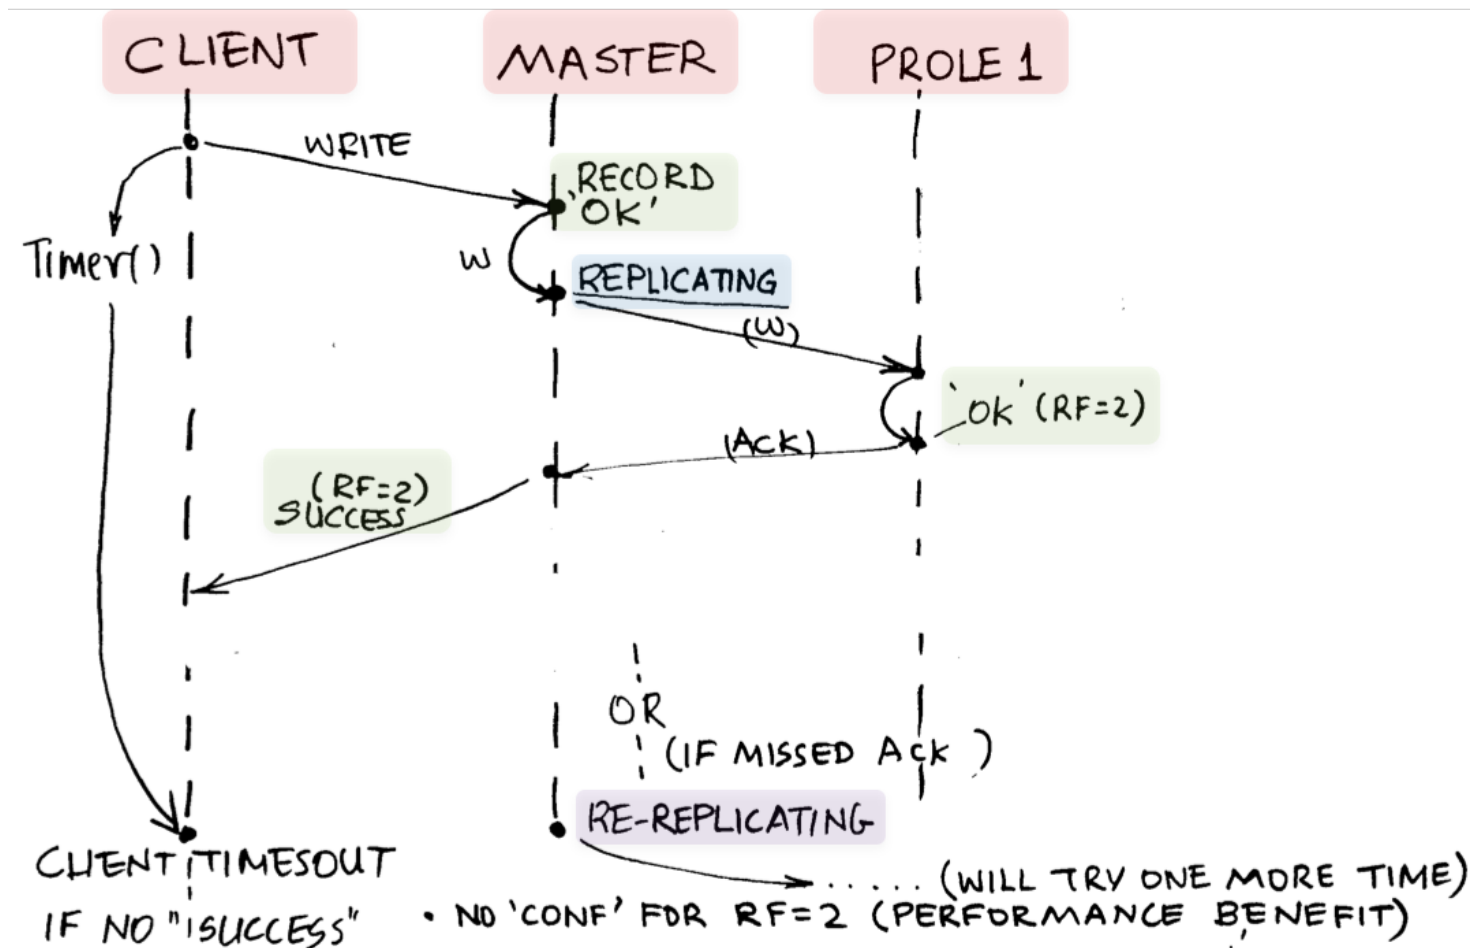 CLIENT
MASTER
PROLE 1
WRITE
'RECORD
OK'
Timer()
W
REPLICATING
(W)
'OK' (RF=2)
(ACK)
(RF=2)
SUCCESS
OR
(IF MISSED Ack )
RE-REPLICATING
CLIENT TIMESOUT
..... (WILL TRY ONE MORE TIME)
IF NO "SUCCESS"
• NO 'CONF' FOR RF=2 (PERFORMANCE BENEFIT)